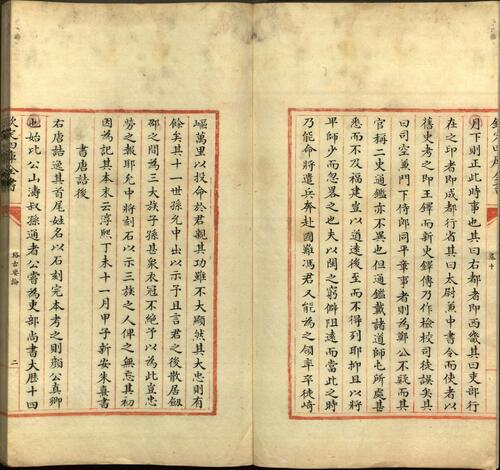 月下則正此時事也其曰右都者即西畿其曰吏部行
在之印者即成都行省其曰太尉蕪中書令而使者以
舊史考之即王鐸而新史鐸傳乃作檢校司徒誤矣其
曰司空蕪門下侍郎同平章事者則為鄭公不疑而其
官稱二史通鑑亦不異也但通鑑載諸道師屯所處甚
悉而不及福建豈以道遠後至而不得列耶抑且以將
卑師少而忽畧之也夫以閩之窮僻阻遠而當此之時
乃能命將遣兵奔赴國難馮君又能為之領率卒徒崎
嶇萬里以投命於君親其功難不大顯然其大忠則有
餘矣其十一世孫允中出以示予且言君之後散居劔
邵之間為三大族子孫甚衆衣冠不絶予以為此豈忠
勞之報耶允中將刻石以示三族之人俾之無忘其初
因為記其本末云淳熙丁未十一月甲子新安朱熹書
書唐誥後
右唐誥逸其首尾姓名以石刻完本考之則顔公真卿
也始比公山濤叔孫通者公嘗為吏部尚書大歴十四
欽定四庫全書
格古要論
二
卷十